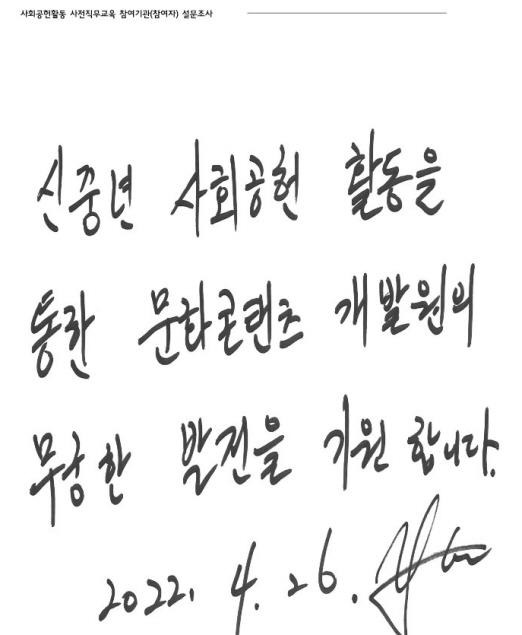 사회공헌활동 사전직무교육 참여기관(참여자) 설문조사
신중년 사회공헌 활동을
통한 문화콘텐츠 개발원의
무궁한 발전을 기원 합니다.
2022. 4. 26.